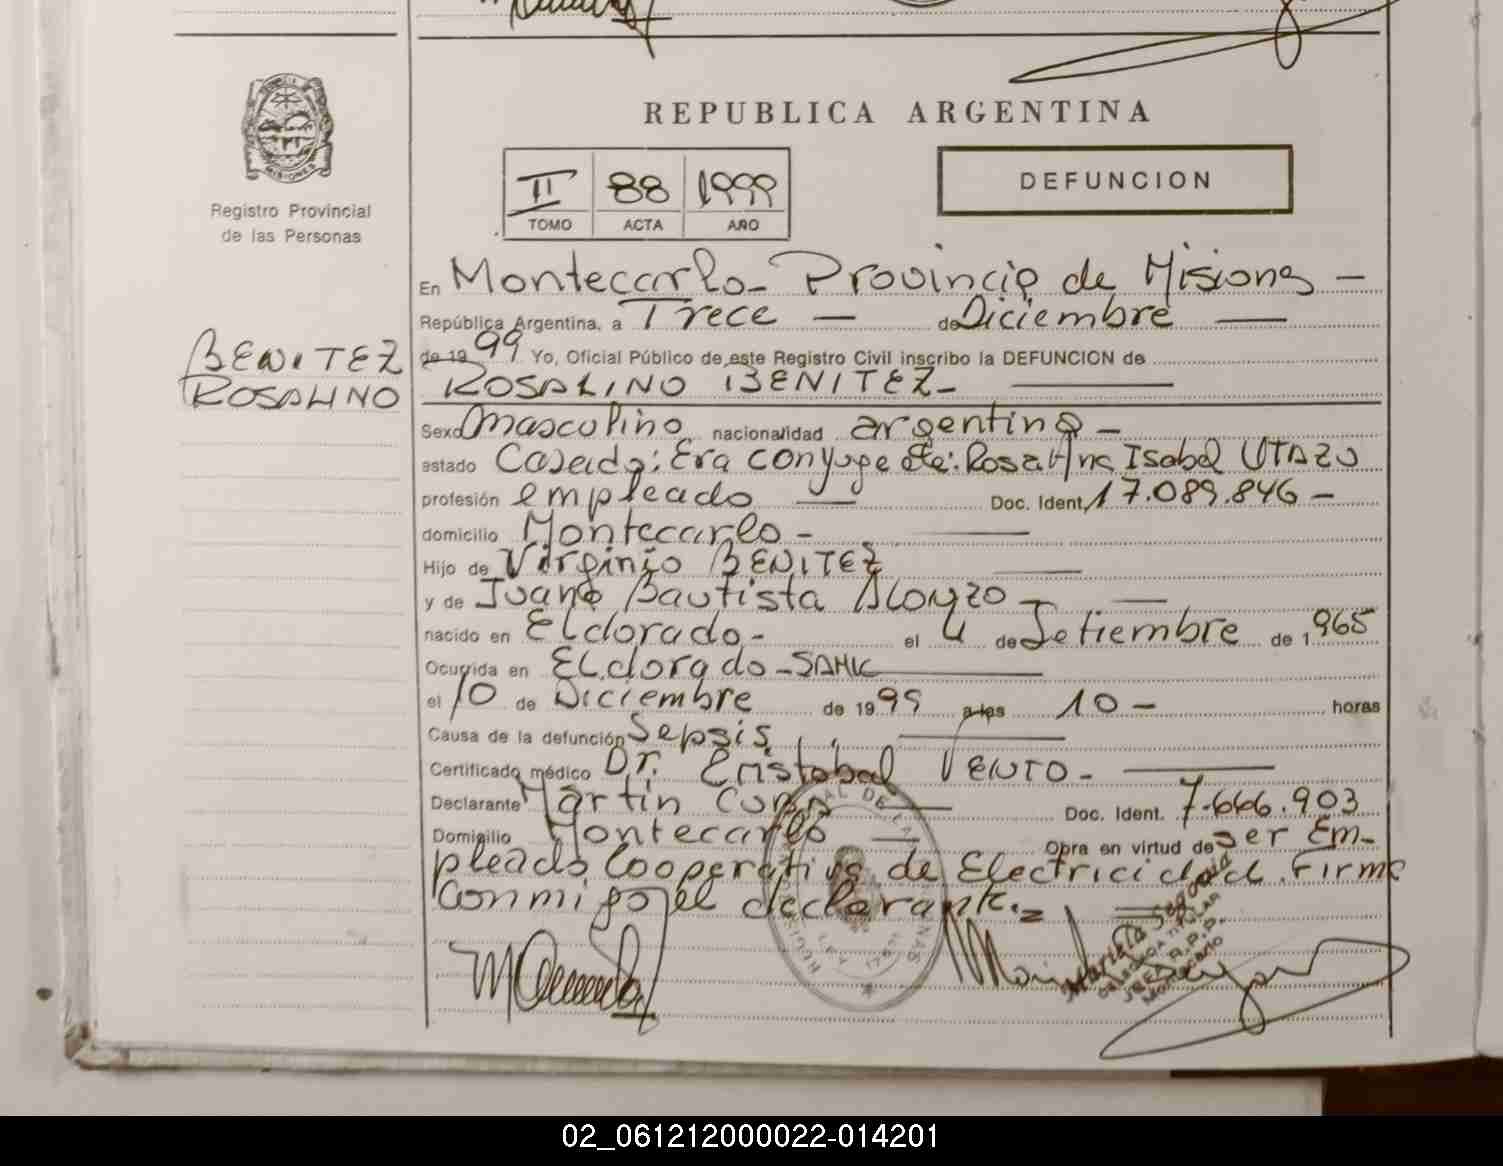 MISIONES
Registro Provincial
de las Personas
REPUBLICA ARGENTINA
II 88 1999
TOMO ACTA AÑO
DEFUNCION
En Montecarlo - Provincia de Misiones -
República Argentina, a Trece - de Diciembre -
de 19 99 Yo, Oficial Público de este Registro Civil inscribo la DEFUNCION de
BENITEZ
ROSALINO
ROSALINO BENITEZ -
Sexo Masculino nacionalidad argentino -
estado Casado: Era conyuge de: Rosalina Isabel UTAZU
profesión empleado - Doc. Ident. 17.089.846 -
domicilio Montecarlo -
Hijo de Virginio BENITEZ
y de Juana Bautista Alonzo -
nacido en Eldorado - el 4 de Setiembre de 1.965
Ocurrida en Eldorado - SAMIC
el 10 de Diciembre de 19 99 a las 10 - horas
Causa de la defunción Sepsis
Certificado médico Dr. Cristobal VENTO -
Declarante Martin Doc. Ident. 7.666.903
Domicilio Montecarlo - Obra en virtud de ser Em-
pleado Cooperativa de Electricidad. Firma
conmigo el declarante. =
Mariela Segovia
DELEGADA TITULAR
R.P.P.
Montecarlo
02_061212000022-014201